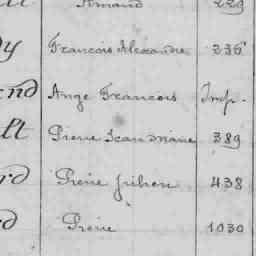 Armand 229
dy François Alexandre 236
nd Ange François Imp.
lt Pierre Jean Marie 389
rd Pierre Julien 438
rd Pierre 1030